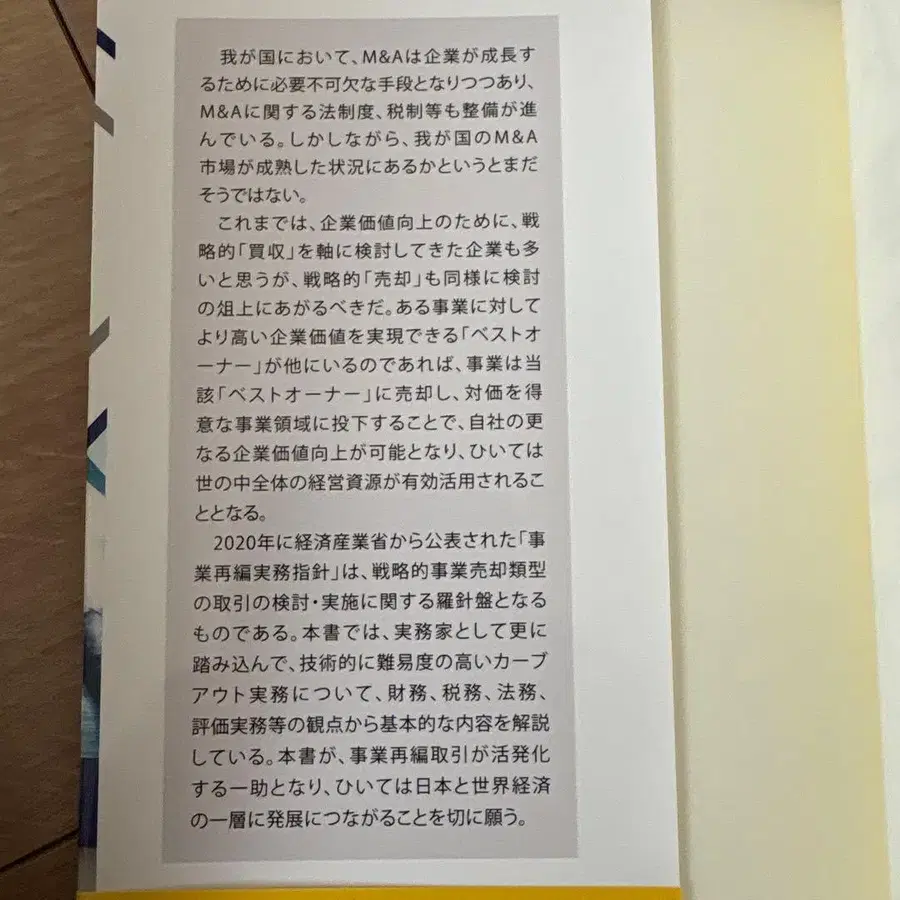 我が国において、M&Aは企業が成長す
るために必要不可欠な手段となりつつあり、
M&Aに関する法制度、税制等も整備が進
んでいる。しかしながら、我が国のM&A
市場が成熟した状況にあるかというとまだ
そうではない。
これまでは、企業価値向上のために、戦
略的「買収」を軸に検討してきた企業も多
いと思うが、戦略的「売却」も同様に検討
の俎上にあがるべきだ。ある事業に対して
より高い企業価値を実現できる「ベストオ
ーナー」が他にいるのであれば、事業は当
該「ベストオーナー」に売却し、対価を得
意な事業領域に投下することで、自社の更
なる企業価値向上が可能となり、ひいては
世の中全体の経営資源が有効活用されるこ
ととなる。
2020年に経済産業省から公表された「事
業再編実務指針」は、戦略的事業売却類型
の取引の検討・実施に関する羅針盤となる
ものである。本書では、実務家として更に
踏み込んで、技術的に難易度の高いカーブ
アウト実務について、財務、税務、法務、
評価実務等の観点から基本的な内容を解説
している。本書が、事業再編取引が活発化
する一助となり、ひいては日本と世界経済
の一層に発展につながることを切に願う。